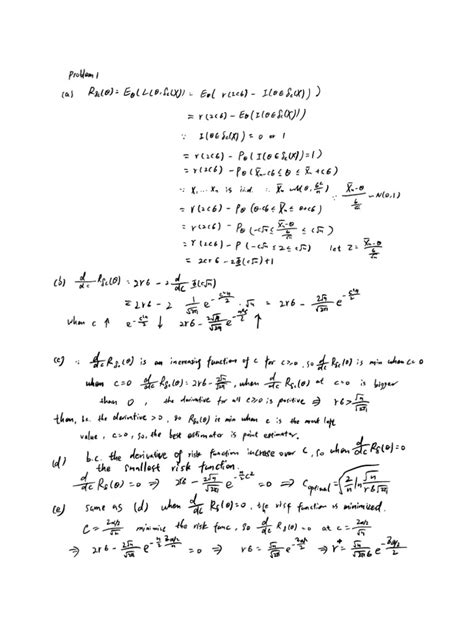 Problem 1
(a) R_{δc}(θ) = E_θ(L(θ, δ_c(X))) = E_θ( r(2cσ) - I(θ∈δ_c(X)) )
= r(2cσ) - E_θ(I(θ∈δ_c(X)))
∵ I(θ∈δ_c(X)) = 0 or 1
= r(2cσ) - P_θ(I(θ∈δ_c(X))=1)
= r(2cσ) - P_θ(X̄_n - cσ ≤ θ ≤ X̄_n + cσ)
∵ X_1, ... X_n is iid. ∴ X̄_n ~ N(θ, σ²/n) ∵ (X̄_n-θ)/(σ/√n) ~ N(0,1)
= r(2cσ) - P_θ(θ-cσ ≤ X̄_n ≤ θ+cσ)
= r(2cσ) - P_θ(-c√n ≤ (X̄_n-θ)/(σ/√n) ≤ c√n)
= r(2cσ) - P(-c√n ≤ Z ≤ c√n) let Z = (X̄_n-θ)/(σ/√n)
= 2crσ - 2Φ(c√n) + 1
(b) d/dc R_{δc}(θ) = 2rσ - 2 d/dc Φ(c√n)
= 2rσ - 2 1/√2π e^{-c²n/2} · √n = 2rσ - 2√n/√2π e^{-c²n/2}
when c ↑ e^{-c²n/2} ↓ 2rσ - 2√n/√2π e^{-nc²/2} ↑
(c) ∵ d/dc R_{δc}(θ) is an increasing function of c for c≥0, so d/dc R_{δc}(θ) is min when c=0
when c=0 d/dc R_{δc}(θ) = 2rσ - 2√n/√2π, when d/dc R_{δc}(θ) at c=0 is bigger
than 0, the derivative for all c≥0 is positive ⇒ rσ > √n/√2π
then, b.c. the derivative >0, so R_{δc}(θ) is min when c is the most left
value, c=0, so, the best estimator is point estimator.
(d) b.c. the derivative of risk function increase over c, so when d/dc R_{δc}(θ)=0
the smallest risk function.
d/dc R_{δc}(θ) = 0 ⇒ 2rσ - 2√n/√2π e^{-n/2 c²} = 0 ⇒ C_{optimal} = √(2/n ln √n/(rσ√2π))
(e) same as (d) when d/dc R_{δc}(θ)=0, the risk function is minimized.
C = Z_{α/2}/√n minimize the risk func, so d/dc R_{δc}(θ) = 0 at c = Z_{α/2}/√n
⇒ 2rσ - 2√n/√2π e^{-n/2 Z²_{α/2}/n} = 0 ⇒ rσ = √n/√2π e^{-Z²_{α/2}/2} ⇒ r* = √n/(√2π σ) e^{-Z²_{α/2}/2}